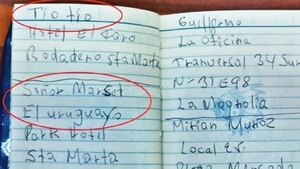 Tio tio
Hotel El Faro
Rodadero Sta Marta
Señor Marset
El uruguayo
Park Hotel
Sta Marta
Guillermo
La Oficina
Tranversal 34 Sur
N-31E98
La Magnolia
Mirian Muñoz
Local
Mercado